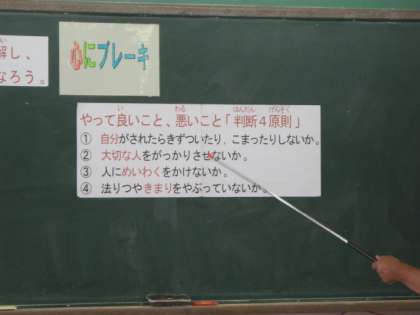 解し、
なろう。
心にブレーキ
やって良いこと、悪いこと「判断４原則」
① 自分がされたらきずついたり、こまったりしないか。
② 大切な人をがっかりさせないか。
③ 人にめいわくをかけないか。
④ 法りつやきまりをやぶっていないか。